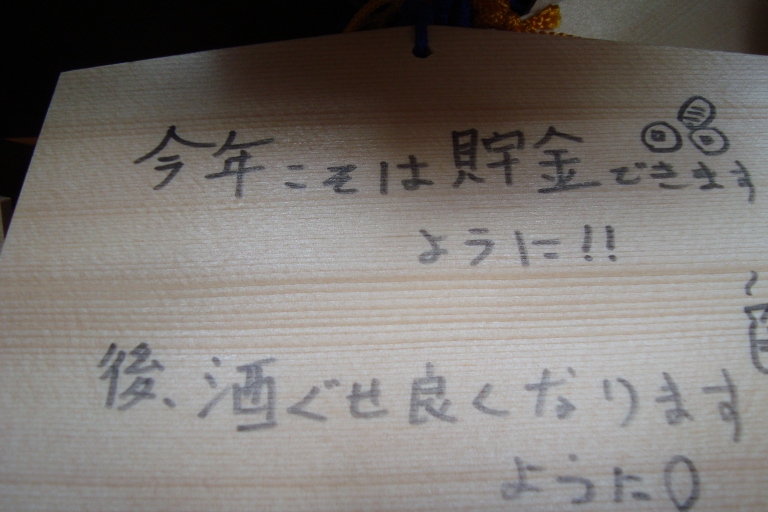 今年こそは貯金できます
ように!!
後、酒ぐせ良くなります
ように